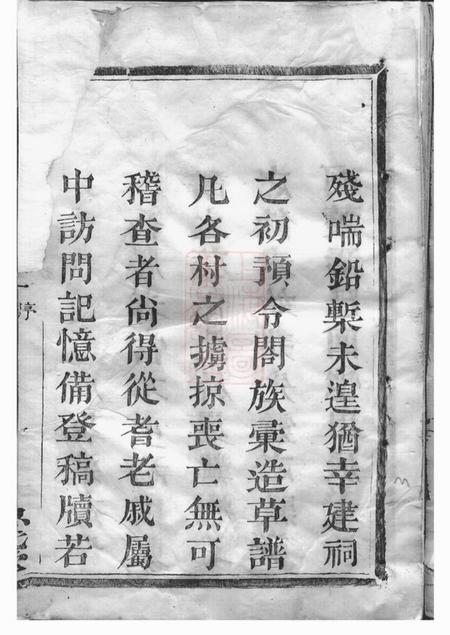 殘喘鉛槧未遑猶幸建祠
之初預令閤族彙造草譜
凡各村之擄掠喪亡無可
稽查者尙得從耆老戚屬
中訪問記憶備登稿牘若